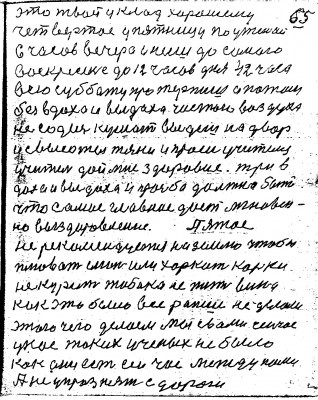 65
это твой уклад хорошему
четвертое у пятницу поужинай
6 часов вечера и неш до самого
воскресене до 12 часов дня 1/2 часа
всю субботу протерпиш а потом
без вдоха и выдаха чистого воздуха
не содня кушат выдеш на двор
и свысоты тяни и проси учителя
учител дай мне здоровие. три в
доха и выдаха и прозба должна быт
что самое главное дает мгновен-
но выздоровление. Пятое
не рекомендуется на землю чтобы
плюват слюн или харкат харки.
не курит табака не пит вина
как это было все раньше не делали
этого чего делаем мы с вами сейчас
у нас таких ученых не было
как они ест сей час между нами
А не упразнят с дороги